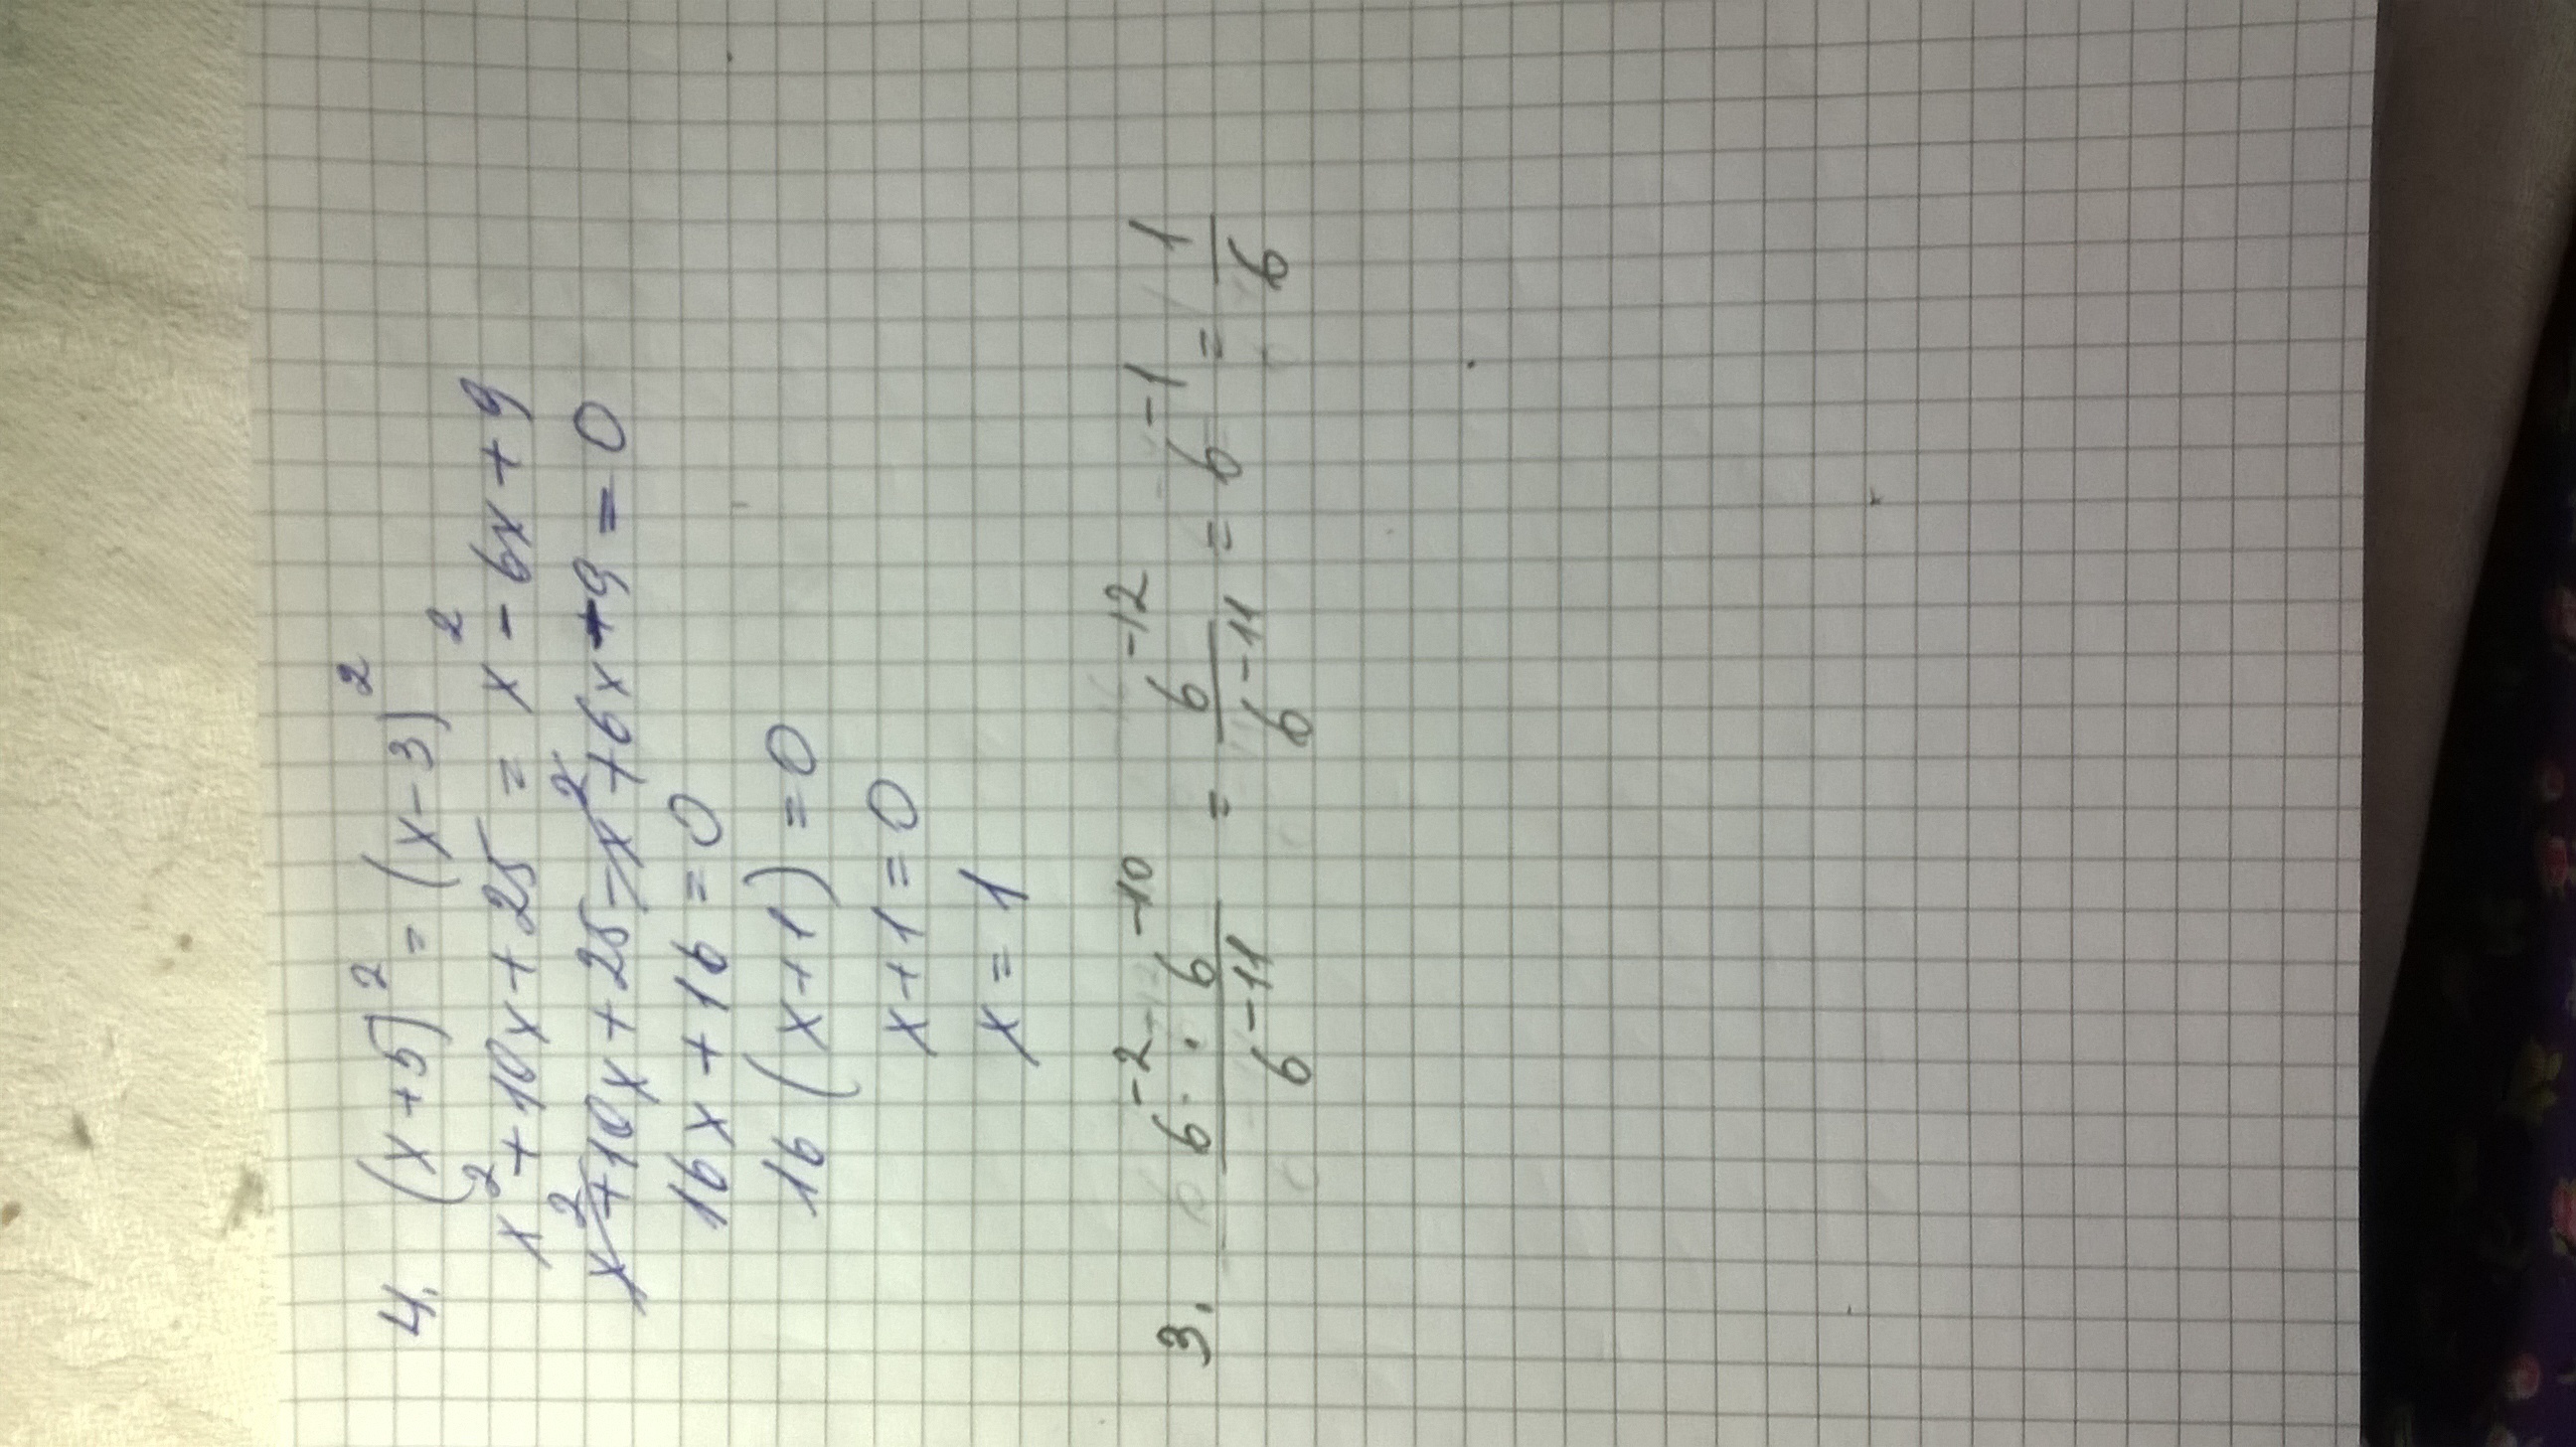 4. (x+5)² = (x-3)²
x² + 10x + 25 = x² - 6x + 9
x² + 10x + 25 - x² + 6x - 9 = 0
16x + 16 = 0
16 (x+1) = 0
x+1 = 0
x = 1
3. 6⁻² · 6⁻¹⁰ / 6⁻¹¹ = 6⁻¹² / 6⁻¹¹ = 6⁻¹ = 1/6